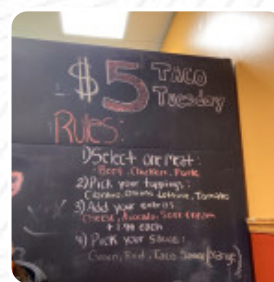 $5 TACO
Tuesday
RULES:
1) Select one meat:
Beef, Chicken, Pork
2) Pick your toppings:
Cilantro, Onions, Lettuce, Tomatoes
3) Add your extras
Cheese, Avocado, Sour Cream
each
4) Pick your Sauce:
Green, Red, Taco Sauce (orange)